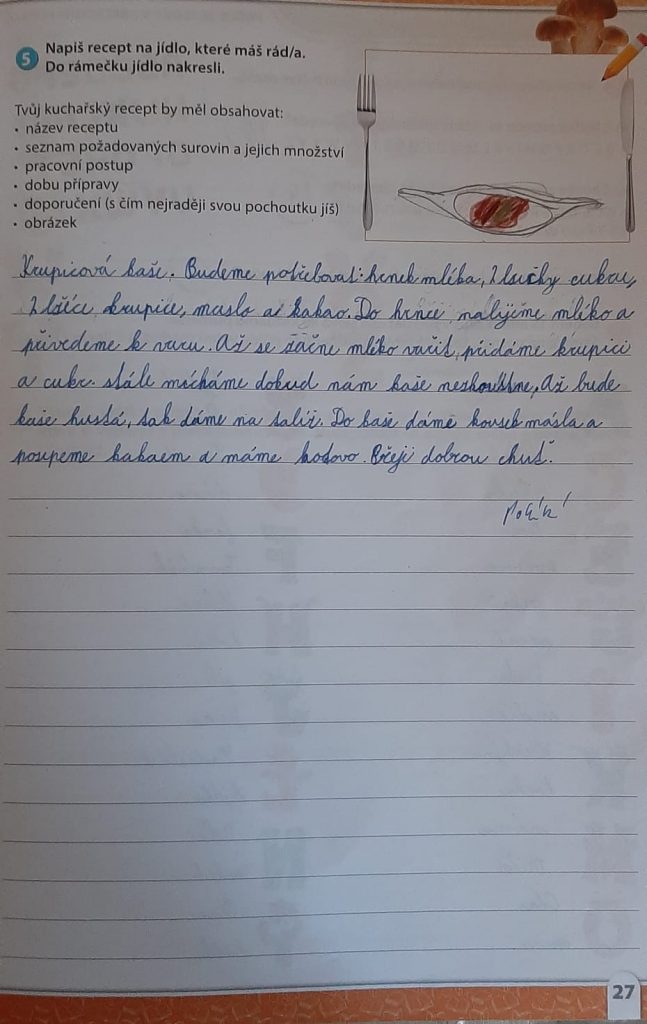 5 Napiš recept na jídlo, které máš rád/a.
Do rámečku jídlo nakresli.
Tvůj kuchařský recept by měl obsahovat:
• název receptu
• seznam požadovaných surovin a jejich množství
• pracovní postup
• dobu přípravy
• doporučení (s čím nejraději svou pochoutku jíš)
• obrázek
Krupicová kaše. Budeme potřebovat: hrnek mléka, 2 cukru,
2 lžíce krupice, maslo a kakao. Do hrnce nalijeme mléko a
přivedeme k varu. Až se začne mléko vařit, přidáme krupici
a cukr. stále mícháme dokud nám kaše nezhoustne, Až bude
kaše hustá, tak dáme na talíř. Do kaše dáme kousek másla a
posypeme kakaem a máme hotovo. Přeji dobrou chuť.
27